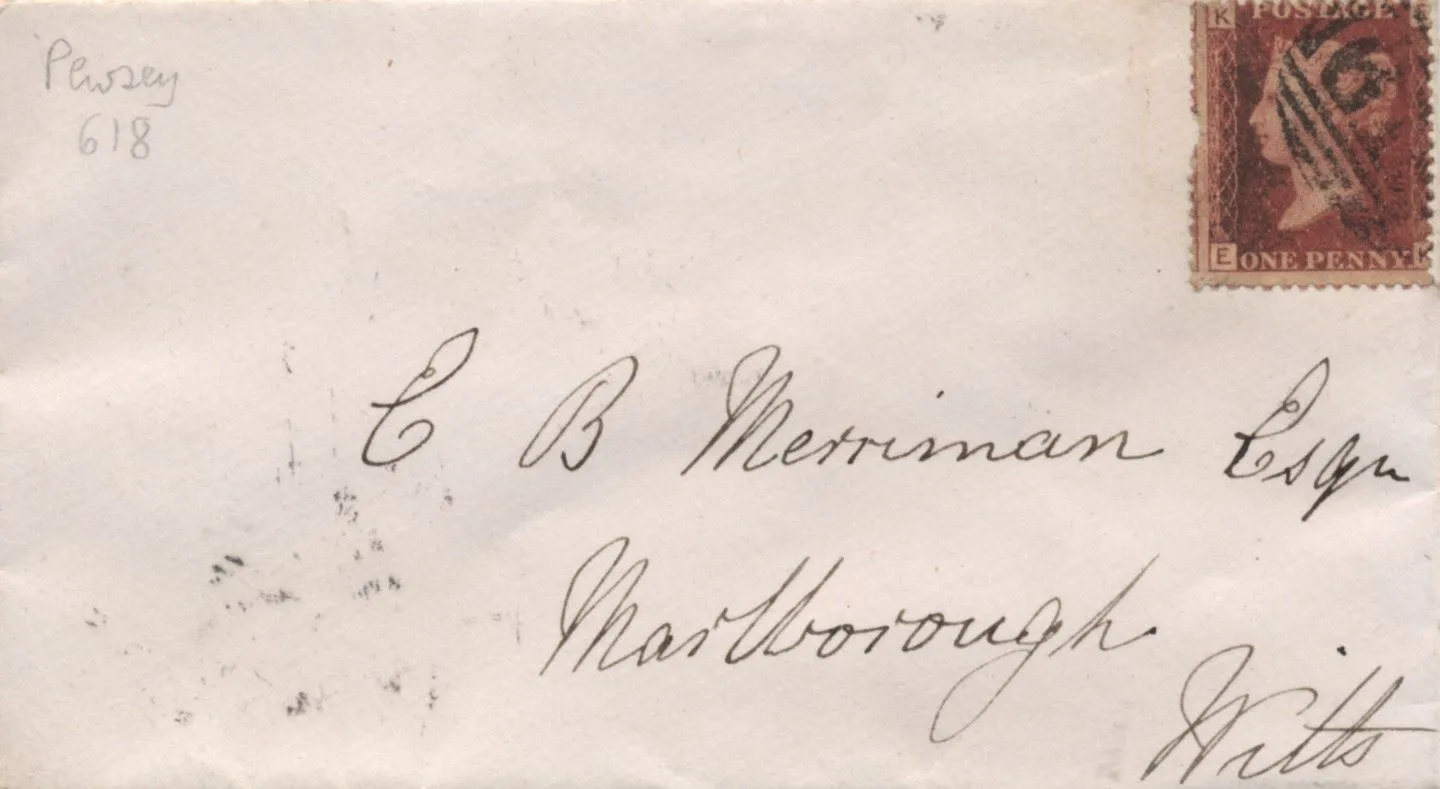 Pewsey
618
K POSTAGE E
6
E ONE PENNY K
E B Merriman Esqr
Marlborough
Wilts